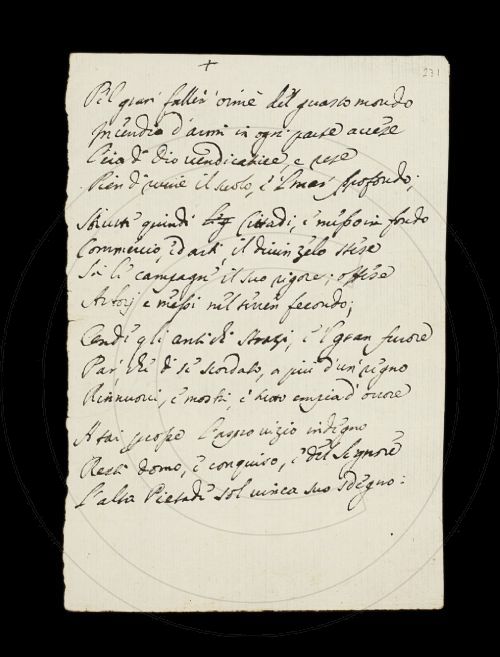 +
231
Pel gravi falliri oimè del guasto mondo
Incendio d'armi in ogni parte accese
L'ira di Dio vendicatrice, e rese
Pien di rovine il suolo, e 'l mar profondo;
quindi Cittadi, e messo in fondo
Commercio, ed arti, il divin zelo stese
Su le campagne il suo rigore; offese
e messi nel terren fecondo;
Rendè gli antichi strazi, e 'l gran furore
Par, che di sè scordato, a più d'un regno
Rinnuovi, e mostri, e tutto empia d'orrore
A tai prove l'aspro vizio indegno
Resti domo, e conquiso, e del Signore
L'alta Pietade sol vinca suo sdegno: